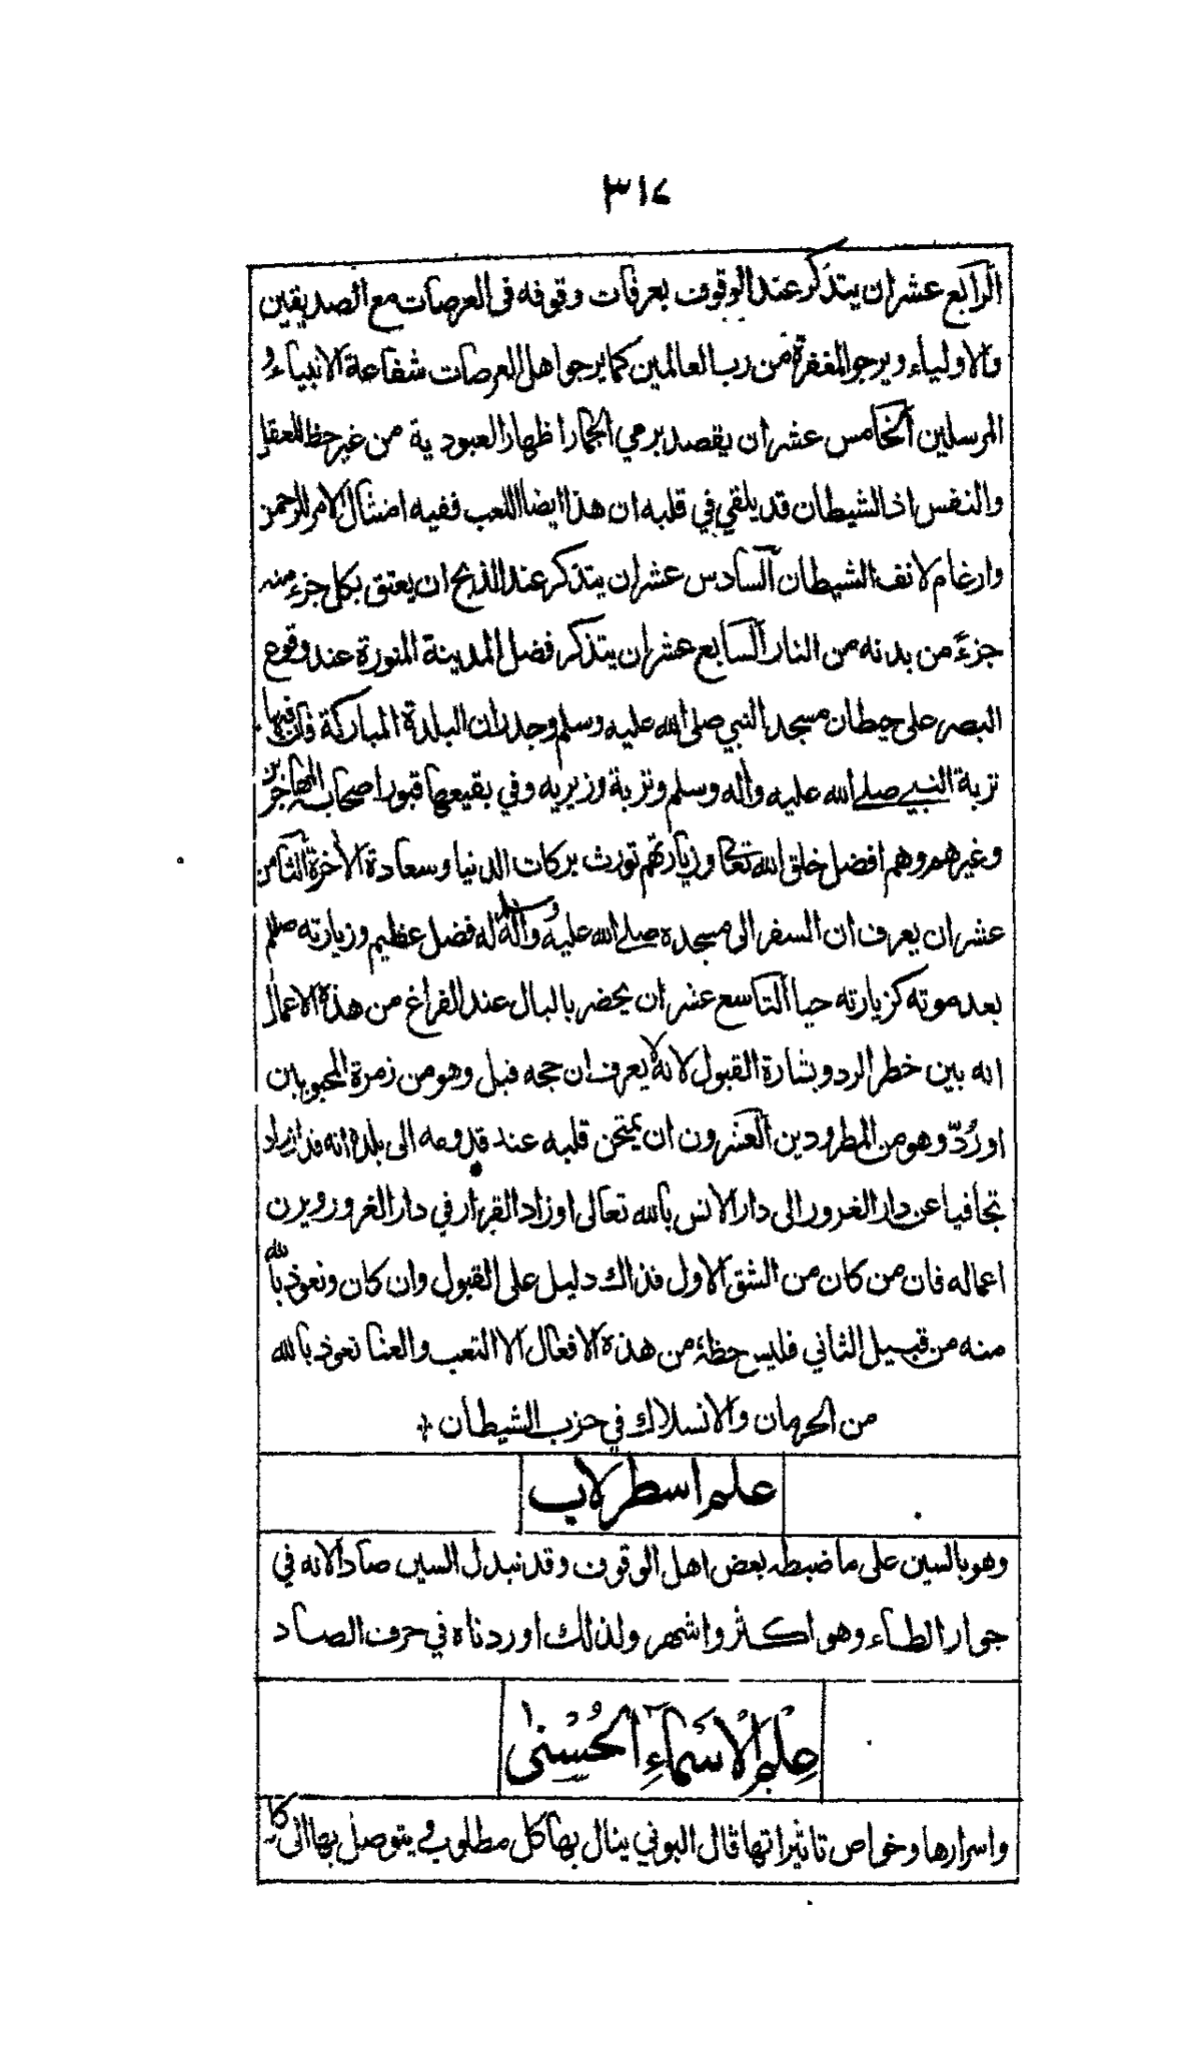 ٣١٤
الرابع عشر ان يتذكر عند الوقوف بعرفات وقوفه فى العرصات مع الصديقين
والاولياء ويرجو المغفرة من رب العالمين كما يرجو اهل العرصات شفاعة الانبياء و
المرسلين الخامس عشر ان يقصد برمي الجمار اظهار العبودية من غير حظ للعقل
والنفس اذ الشيطان قد يلقي في قلبه ان هذا ايضا اللعب ففيه امتثال الامر للرحمن
وارغام لانف الشيطان السادس عشر ان يتذكر عند الذبح ان يعتق بكل جزء منه
جزءً من بدنه من النار السابع عشر ان يتذكر فضل المدينة المنورة عند وقوع
البصر على حيطان مسجد النبي صلى الله عليه وسلم وجدران البلدة المباركة فان فيها
تربة النبي صلے الله عليه وأله وسلم وتربة وزيريه وفي بقيعها قبور اصحابه المهاجرين
وغيرهم وهم افضل خلق الله تعالى وزيارتهم تورث بركات الدنيا وسعادة الأخرة الثامن
عشر ان يعرف ان السفر الى مسجده صلے الله عليه وأله وسلم له فضل عظيم وزيارته صلعم
بعد موته كزيارته حيا التاسع عشر ان يحضر بالبال عند الفراغ من هذه الاعمال
انه بين خطر الرد وبشارة القبول لانه لا يعرف ان حجه قبل وهو من زمرة المحبوبين
او رُدّ وهو من المطرودين العشرون ان يمتحن قلبه عند قدومه الى بلده انه قد ازداد
تجافيا عن دار الغرور الى دار الانس بالله تعالى او زاد القرار في دار الغرور ويزن
اعماله فان من كان من الشق الاول فذالك دليل على القبول وان كان ونعوذ بالله
منه من قبيل الثاني فليس حظه من هذه الافعال الا التعب والعنا نعوذ بالله
من الحرمان والانسلاك في حزب الشيطان
علم اسطرلاب
وهو بالسين على ما ضبطه بعض اهل الوقوف وقد تبدل السين صادا لانه في
جوار الطاء وهو اكثر واشهر ولذلك اوردناه في حرف الصاد
عِلْمُ الْاَسْمَآءِ الْحُسْنىٰ
واسرارها وخواص تاثيراتها قال البوني ينال بها كل مطلوب و يتوصل بها الى كل